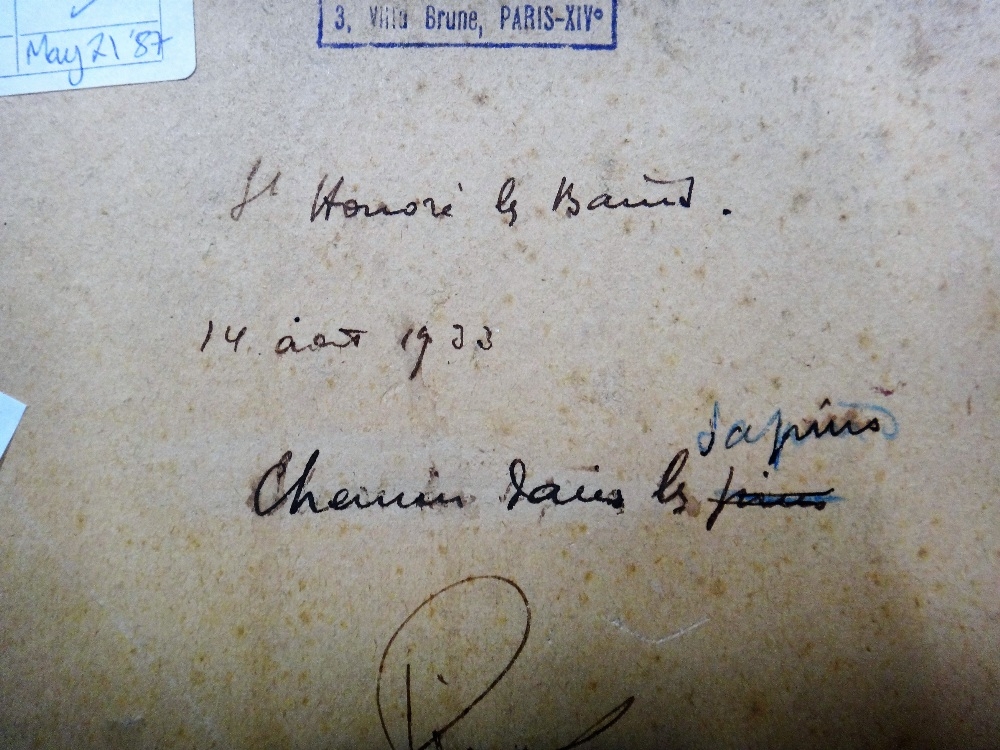 3, Villa Brune, PARIS-XIVᵉ
May 21 '87
St Honoré les Bains.
14 août 1933
sapins
Chemin dans les pins